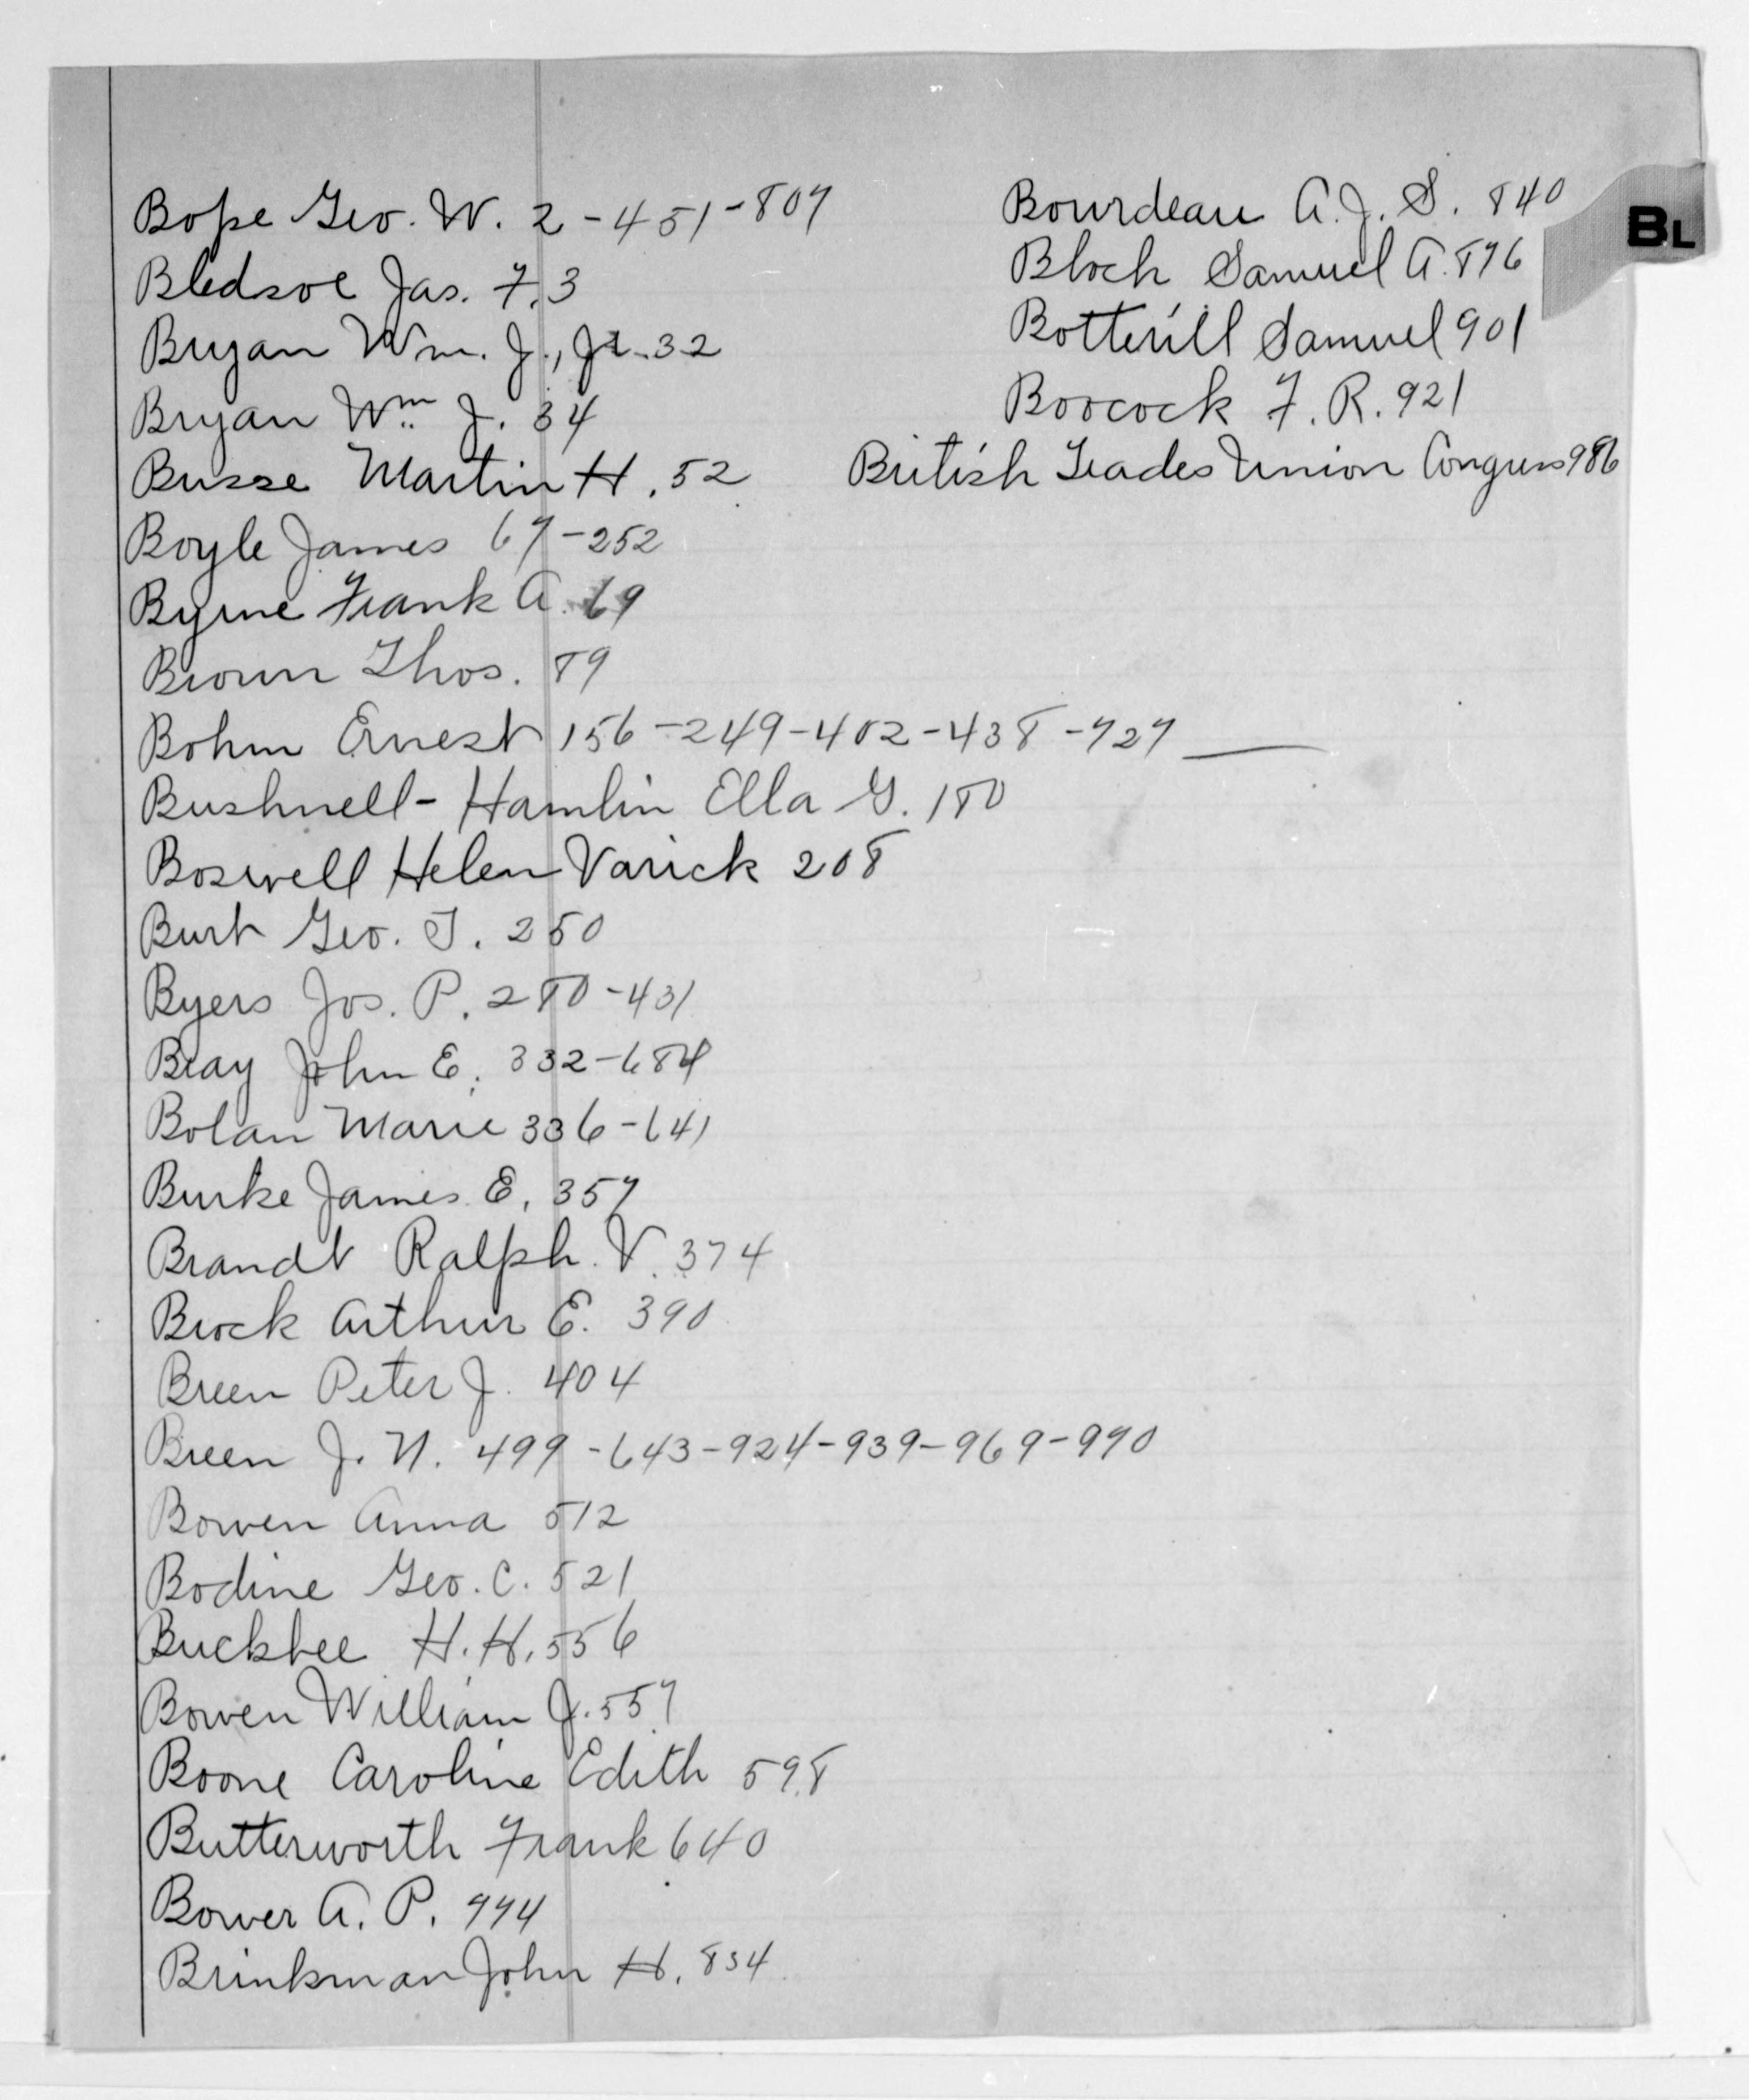 Bope Geo. W. 2-451-807
Bledsoe Jas. F. 3
Bryan Wm. J., Jr. 32
Bryan Wm. J. 34
Busse Martin H. 52
Boyle James 67-252
Byrne Frank A. 69
Brown Thos. 89
Bohm Ernest 156-249-402-438-727
Bushnell-Hamlin Ella G. 180
Boswell Helen Varick 208
Burt Geo. T. 250
Byers Jos. P. 280-431
Bray John E. 332-684
Bolan Marie 336-641
Burke James E. 357
Brandt Ralph V. 374
Brock Arthur E. 390
Breen Peter J. 404
Breen J. N. 499-643-924-939-969-990
Bowen Anna 512
Bodine Geo. C. 521
Buckbee H. H. 556
Bowen William J. 557
Boone Caroline Edith 598
Butterworth Frank 640
Bower A. P. 774
Brinkman John H. 834
Bourdeau A. J. S. 840
Bloch Samuel A. 876
Botterill Samuel 901
Boocock F. R. 921
British Trades Union Congress 986
BL